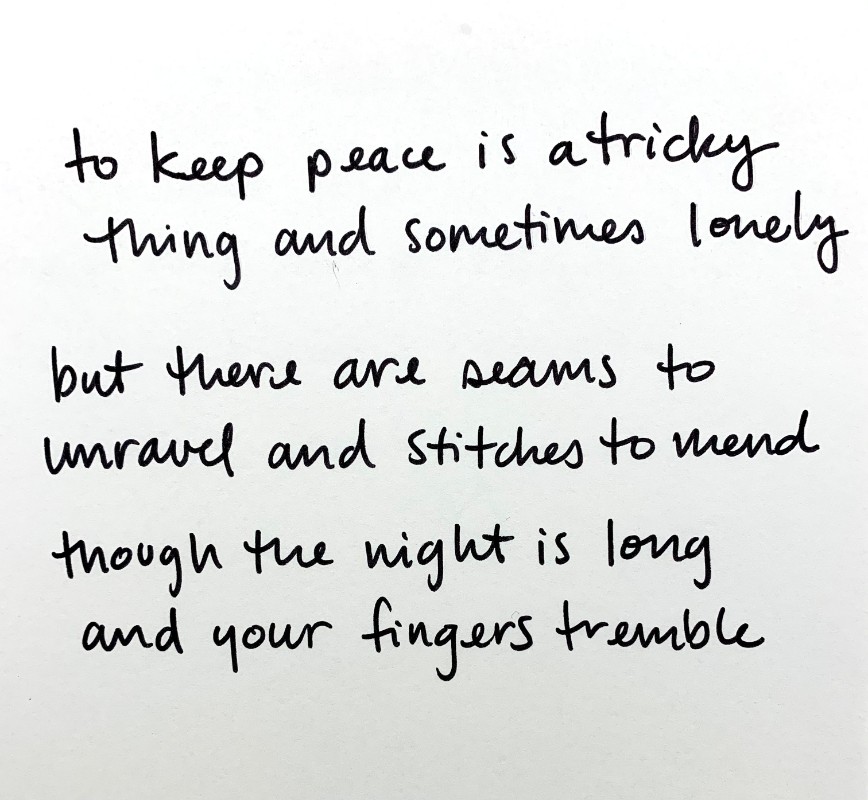 to keep peace is a tricky
thing and sometimes lonely
but there are seams to
unravel and stitches to mend
though the night is long
and your fingers tremble